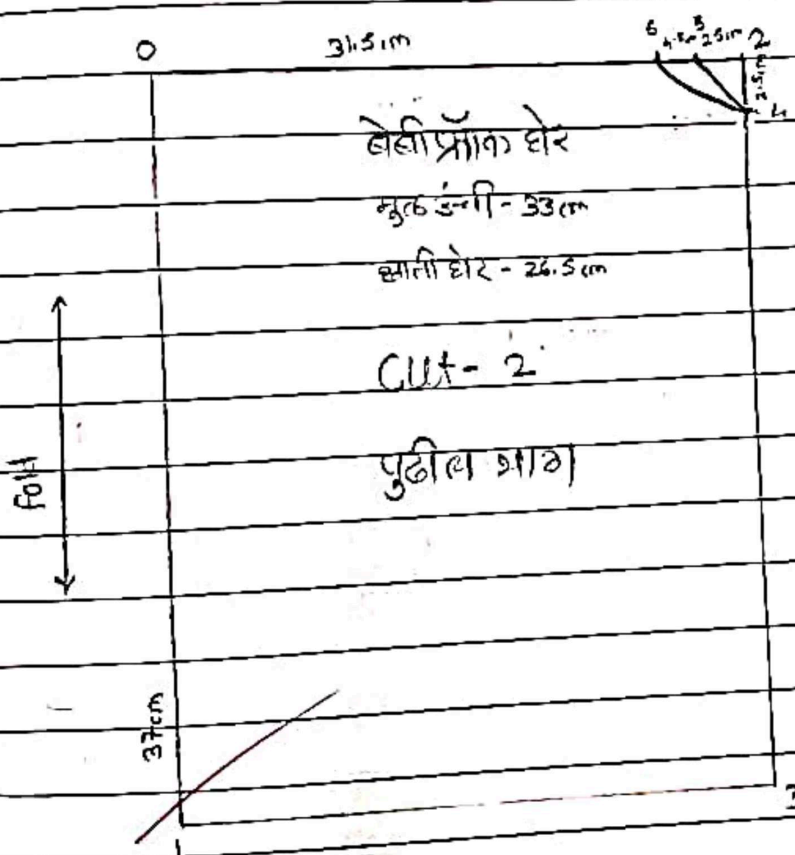 0 31.5 cm 6 4.5cm 5 2.5cm 2
2.5cm
4
बेबी फ्रॉक घेर
मुळ उंची - 33 cm
छाती घेर - 26.5 cm
Cut - 2
पुढील भाग
Fold
37cm
3